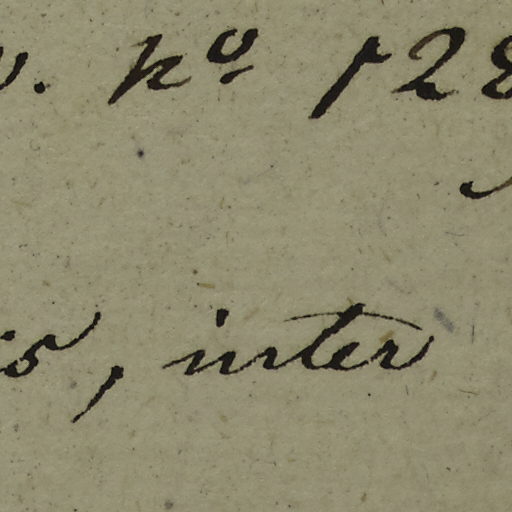 v. nº 128
is, inter